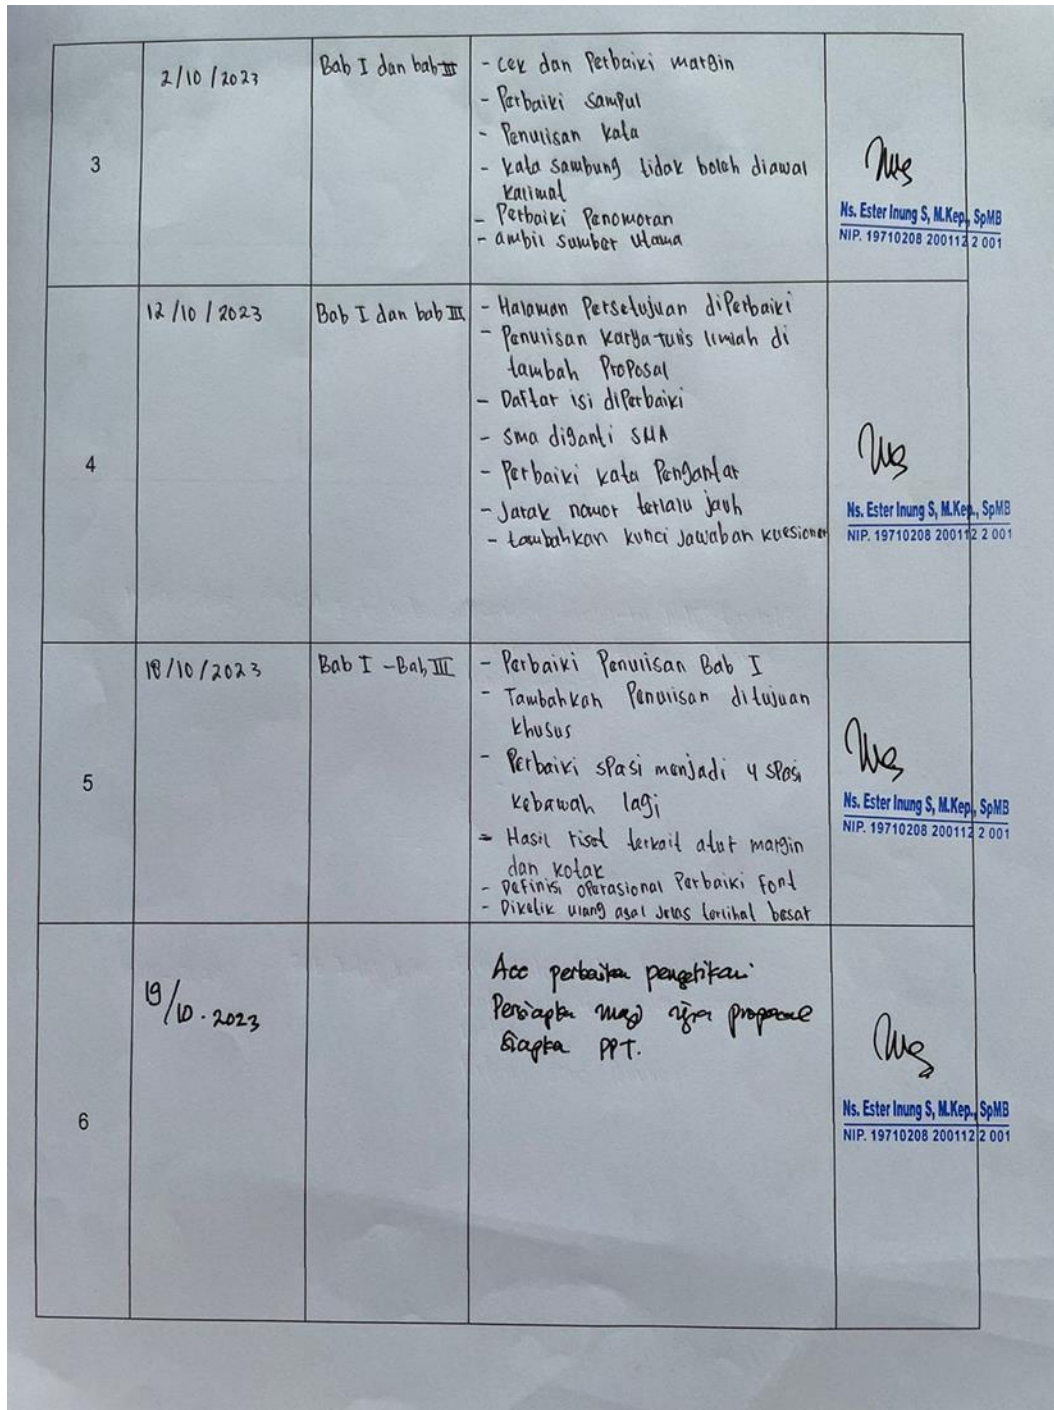 3
2/10/2023
Bab I dan bab III
- cek dan Perbaiki margin
- Perbaiki sampul
- Penulisan kata
- kata sambung tidak boleh diawal
kalimat
- Perbaiki Penomoran
- ambil sumber utama
Ns. Ester Inung S, M.Kep., SpMB
NIP. 19710208 200112 2 001
4
12/10/2023
Bab I dan bab III
- Halaman Persetujuan diPerbaiki
- Penulisan karya tulis ilmiah di
tambah Proposal
- Daftar isi diPerbaiki
- sma diganti SMA
- Perbaiki kata Pengantar
- Jarak nomor terlalu jauh
- tambahkan kunci jawaban kuesioner
Ns. Ester Inung S, M.Kep., SpMB
NIP. 19710208 200112 2 001
5
18/10/2023
Bab I - Bab III
- Perbaiki Penulisan Bab I
- Tambahkan Penulisan ditujuan
khusus
- Perbaiki spasi menjadi 4 spasi
kebawah lagi
- Hasil riset terkait atur margin
dan kotak
- Definisi operasional Perbaiki Font
- Diketik ulang agal jelas terlihat besar
Ns. Ester Inung S, M.Kep., SpMB
NIP. 19710208 200112 2 001
6
19/10.2023
Acc perbaikan pengetikan
Persiapkan ujian proposal
Siapka PPT.
Ns. Ester Inung S, M.Kep., SpMB
NIP. 19710208 200112 2 001